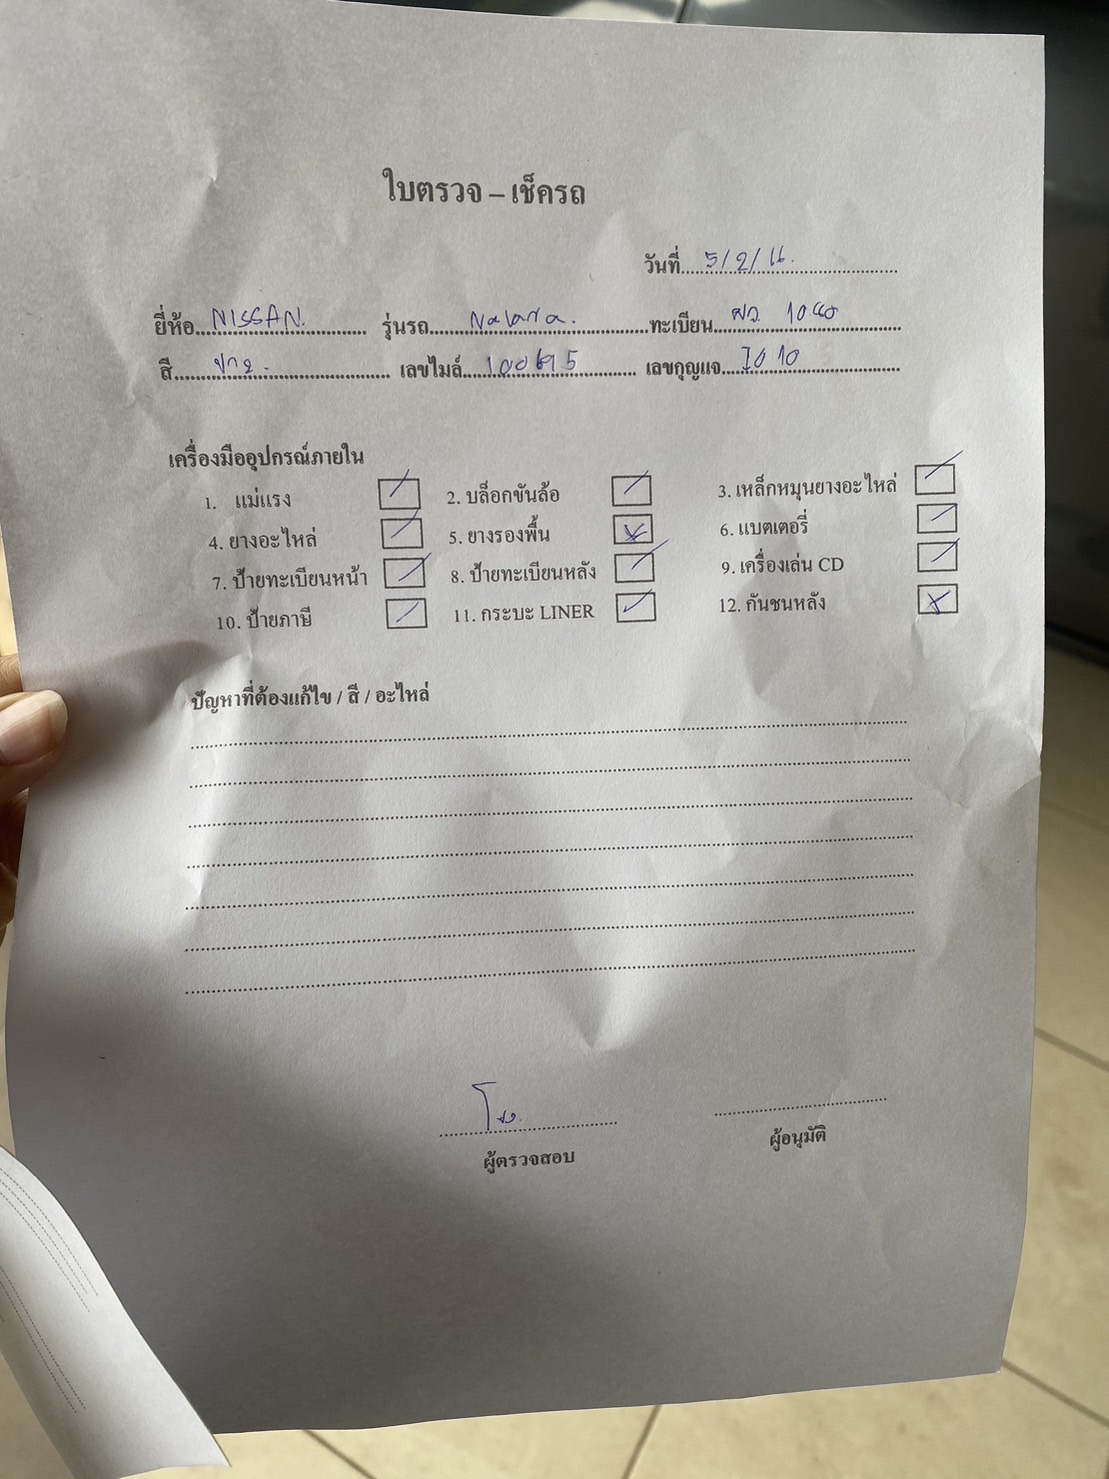 ใบตรวจ – เช็ครถ
วันที่ 5/2/66.
ยี่ห้อ NISSAN. รุ่นรถ Navara. ทะเบียน
สี เลขไมล์ เลขกุญแจ 1010
เครื่องมืออุปกรณ์ภายใน
1. แม่แรง 2. บล็อกขันล้อ 3. เหล็กหมุนยางอะไหล่
4. ยางอะไหล่ 5. ยางรองพื้น 6. แบตเตอรี่
7. ป้ายทะเบียนหน้า 8. ป้ายทะเบียนหลัง 9. เครื่องเล่น CD
10. ป้ายภาษี 11. กระบะ LINER 12. กันชนหลัง
ปัญหาที่ต้องแก้ไข / สี / อะไหล่
ผู้ตรวจสอบ ผู้อนุมัติ